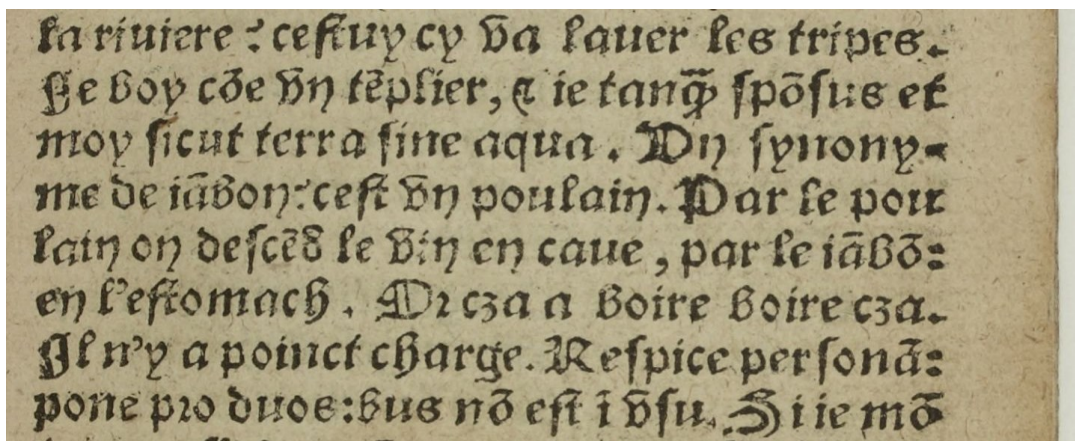 la riuiere: cestuy cy va lauer les tripes.
Je boy cõe vn tẽplier, & ie tanq̃ spõsus et
moy sicut terra sine aqua. Un synony-
me de iãbon: cest vn poulain. Par le pou
lain on descẽd le vin en caue, par le iãbõ:
en l'estomach. Or cza a boire boire cza.
Il n'y a poinct charge. Respice personã:
pone pro duos: bus nõ est ĩ vsu. Si ie mõ